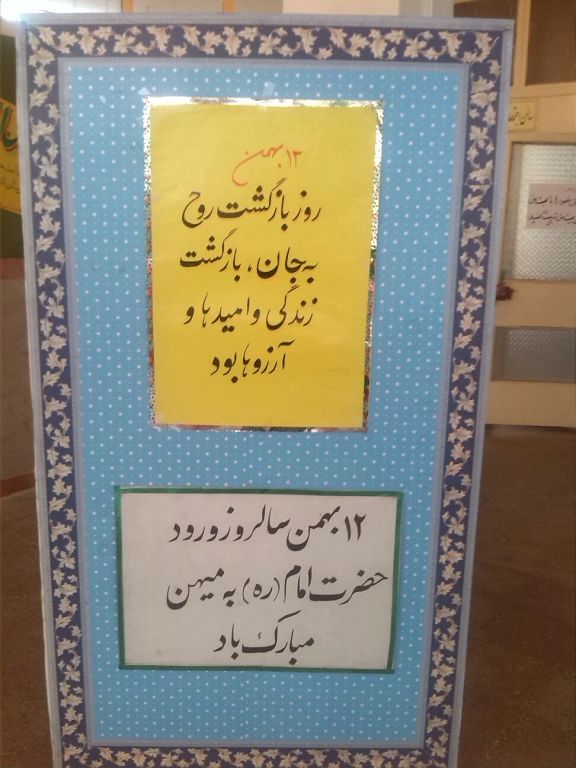 ۱۲ بهمن
روز بازگشت روح
به جان، بازگشت
زندگی و امیدها و
آرزوها بود
۱۲ بهمن سالروز ورود
حضرت امام (ره) به میهن
مبارک باد